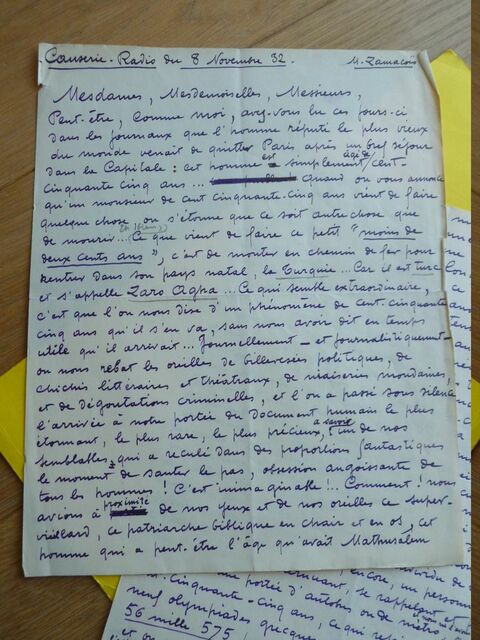 Causerie - Radio du 8 Novembre 32. M. Zamacoïs
Mesdames, Mesdemoiselles, Messieurs,
Peut-être, comme moi, avez-vous lu ces jours-ci
dans les journaux que l'homme réputé le plus vieux
du monde venait de quitter Paris après un bref séjour
dans la Capitale : cet homme est simplement âgé de cent-
cinquante cinq ans... Quand on vous annonce
qu'un monsieur de cent cinquante-cinq ans vient de faire
quelque chose, on s'étonne que ce soit autre chose que
de mourir... Eh bien! Ce que vient de faire ce petit "moins de
deux cents ans", c'est de monter en chemin de fer pour
rentrer dans son pays natal, la Turquie... Car il est turc
et s'appelle Zaro Agha... Ce qui semble extraordinaire,
c'est que l'on nous dise d'un phénomène de cent cinquante
cinq ans qu'il s'en va, sans nous avoir dit en temps
utile qu'il arrivait... Journellement - et journalistiquement -
on nous rebat les oreilles de billevesées politiques, de
chichis littéraires et théatraux, de niaiserie mondaines,
et de dégoutations criminelles, et l'on a passé sous silence
l'arrivée à notre portée du document humain le plus
étonnant, le plus rare, le plus précieux, à savoir : un de nos
semblables qui a reculé dans des proportions fantastiques
le moment de sauter le pas, obsession angoissante de
tous les hommes ! C'est inimaginable !.. Comment ! nous
avions à proximité de nos yeux et de nos oreilles ce super-
vieillard, ce patriarche biblique en chair et en os, cet
homme qui a peut-être l'âge qu'avait Mathusalem
encore, un personn
portée d'autobus ou de métro
cent-cinquante-cinq ans, ce qui
neuf olympiades grecques
56 mille 575,